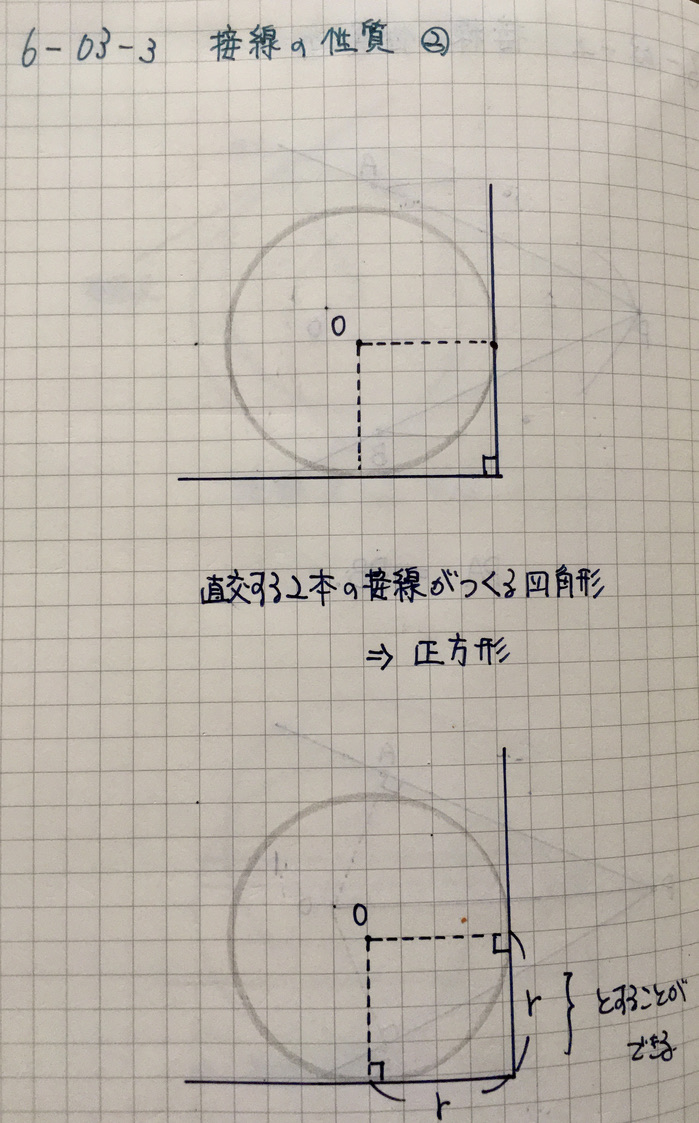 6-03-3 接線の性質 ②
O
直交する2本の接線がつくる四角形
⇒ 正方形
O
r } とすることが
できる
r